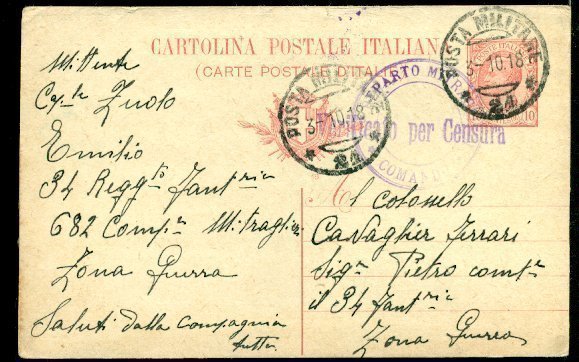 CARTOLINA POSTALE ITALIANA
(CARTE POSTALE D'ITALIE)
POSTA MILITARE
3-10.18
24
POSTA MILITARE
3-10.18
24
REPARTO
per Censura
COMAN
10
Mittente
Cap.le Zuolo
Emilio
34 Regg.to Fant.ria
682 Comp.a Mitraglieri
Zona Guerra
Saluti dalla compagnia
tutta
Al colonello
Cavaglier Ferrari
Sig.r Pietro com.te
il 34 Fant.ria
Zona Guerra